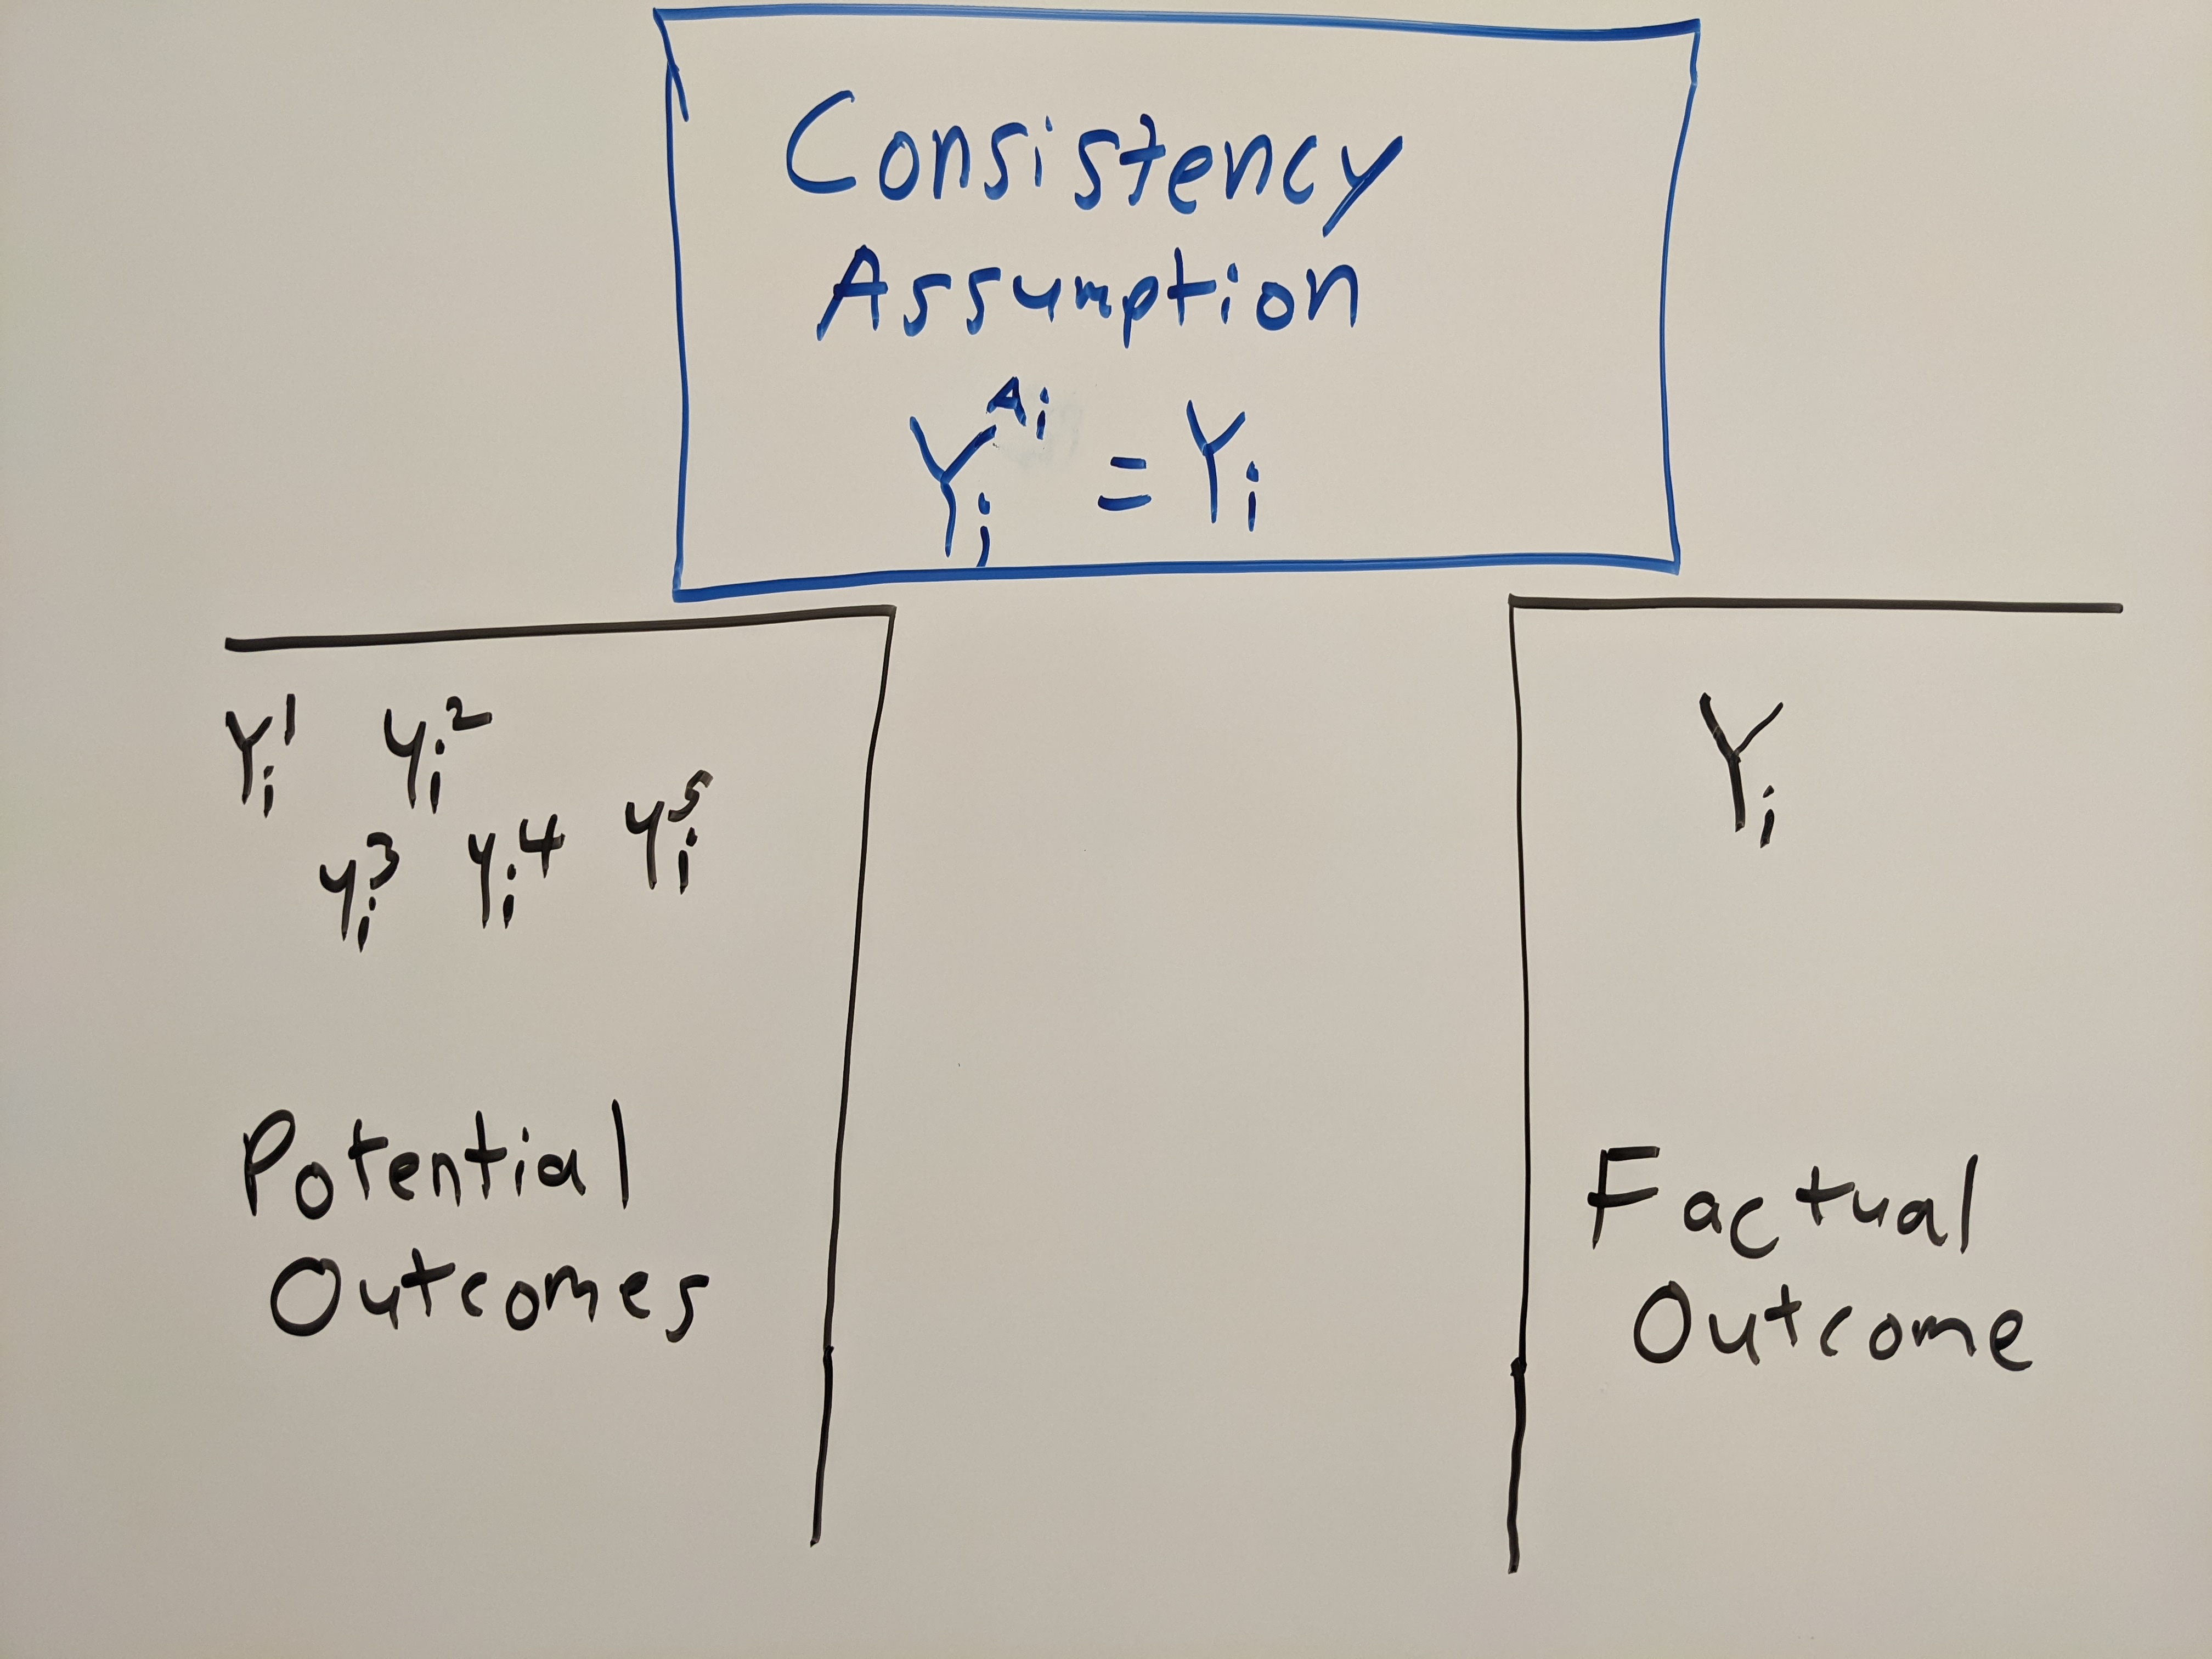 Consistency
Assumption
Y_i^{A_i} = Y_i
Y_i^1 Y_i^2
Y_i^3 Y_i^4 Y_i^5
Potential
Outcomes
Y_i
Factual
Outcome